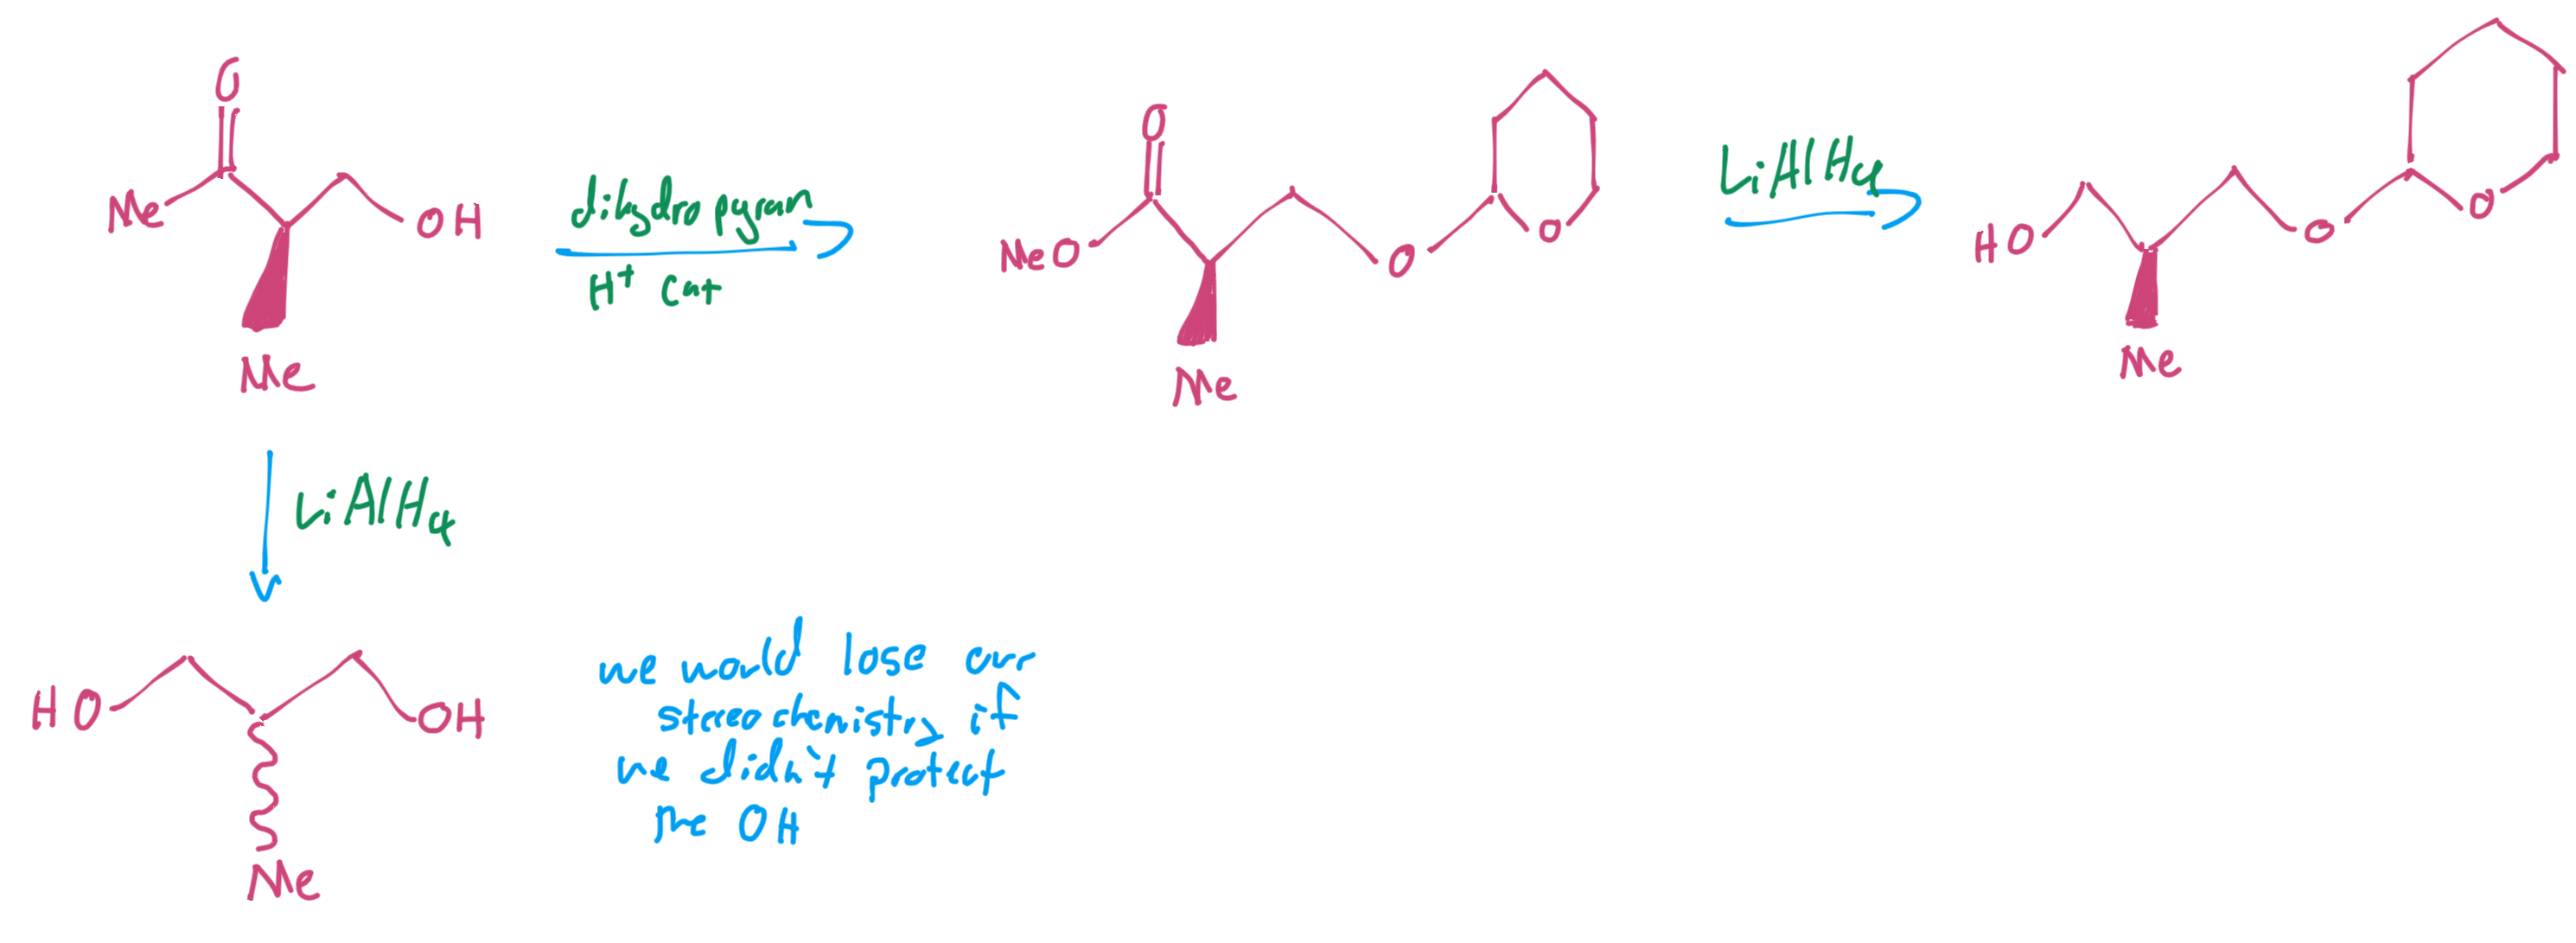 O
Me
OH
Me
dihydropyran
H+ cat
O
MeO
O
O
Me
LiAlH4
HO
O
O
Me
LiAlH4
HO
OH
Me
we would lose our
stereochemistry if
we didn't protect
the OH